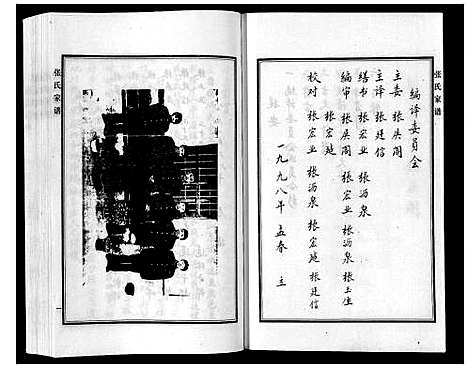 张氏家谱
编译委员会
主委 张兴阁
主译 张廷信
缮书 张宏业 张沥泉
编审 张兴阁 张宏业 张沥泉 张玉生
校对 张宏业 张沥泉 张宏延 张廷信
张宏延
一九九八年 孟春 立
张氏家谱